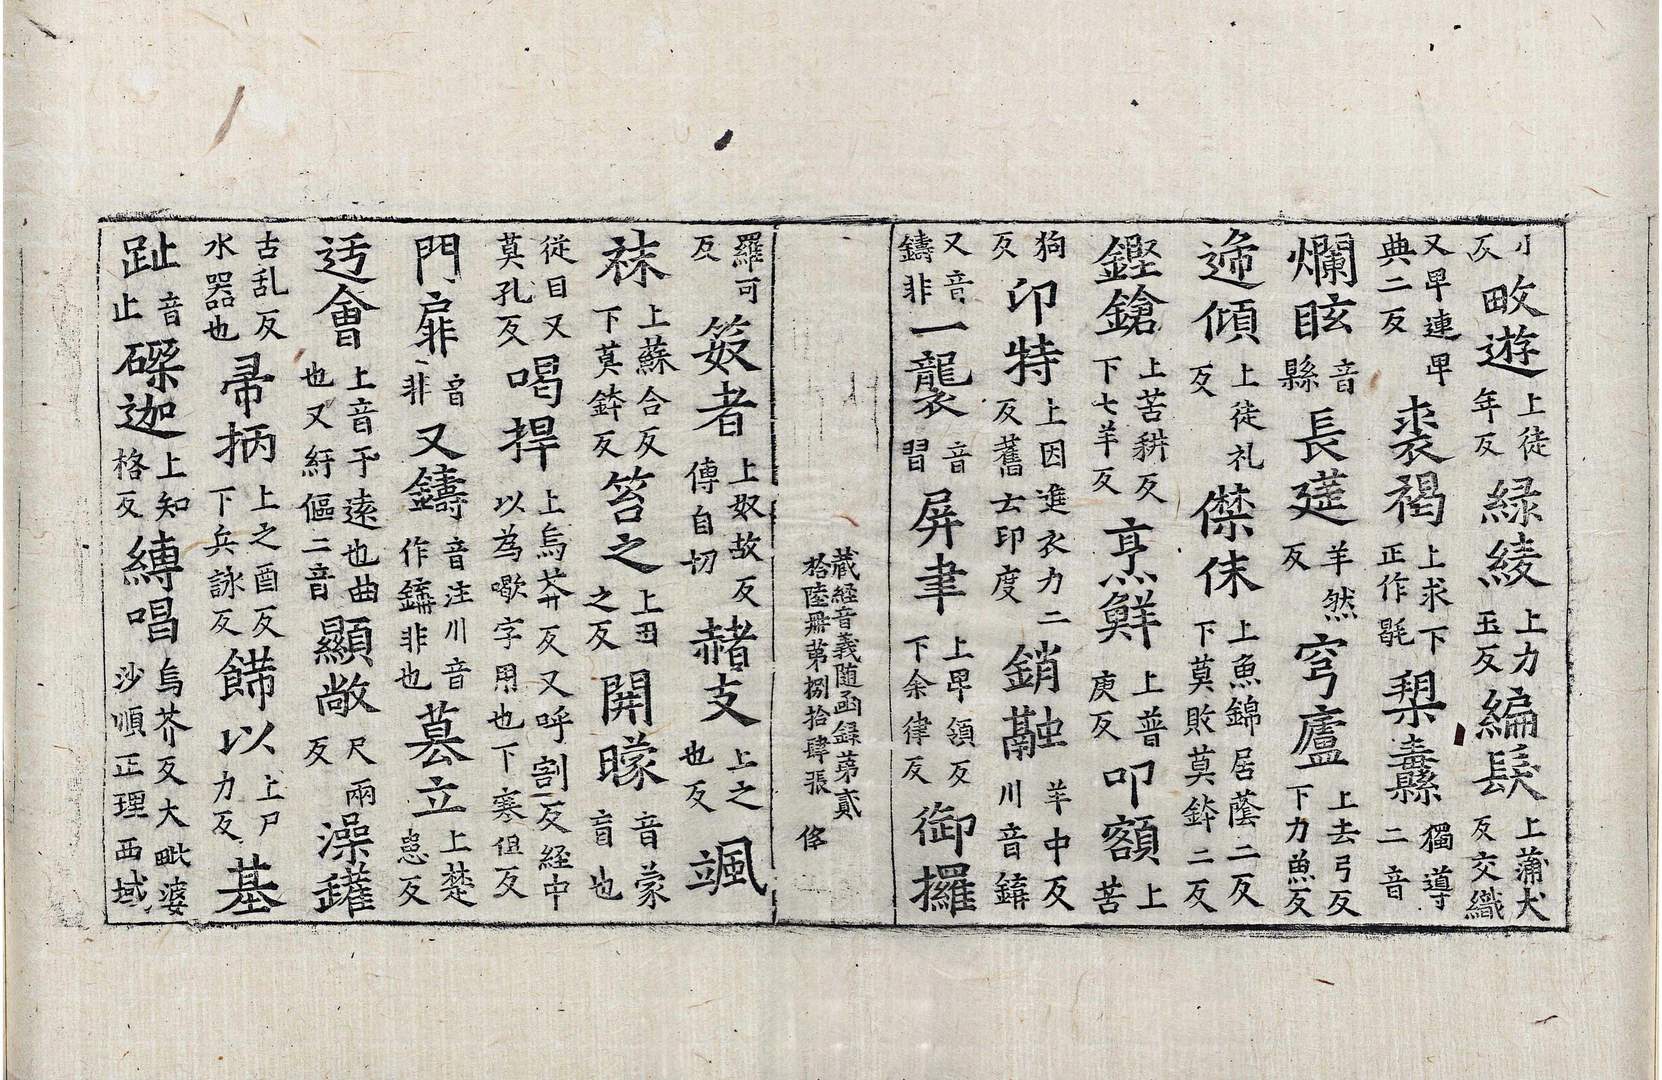 小反畋遊上徒年反緑綾上力玉反編髮上蒲犬反交織
又卑連卑典二反裘褐上求下正作毼𣓌纛縣獨導二音
爛眩音縣長莚羊然反穹廬上去弓反下力魚反
遞傾上徒礼反㦗侎上魚錦居蔭二反下莫敗莫鉢二反
鏗鎗上苦耕反下七羊反烹鮮上普庚反叩額上苦
狗反印特上因進衣力二反舊去印度銷融羊中反川音鏴
又音鑄非一襲音習屏聿上卑領反下余律反御㩡
藏経音義随函録苐貳拾陸冊苐捌拾肆張 俢
羅可反笯者上奴故反傳自切赭支上之也反颯
袜上蘇合反下莫鉢反笞之上丑之反開矇音蒙盲也
従目又莫孔反喝捍上烏芥反又呼割反経中以為嗽字用也下寒但反
門扉音非又鑄音注川音作鏴非也墓立上楚患反
迃會上音于遠也曲也又紆傴二音顯敞尺兩反澡鑵
古乱反水器也帚柄上之酉反下兵詠反餙以上尸力反基
趾音止磔迦上知格反縛喝烏芥反大毗婆沙順正理西域